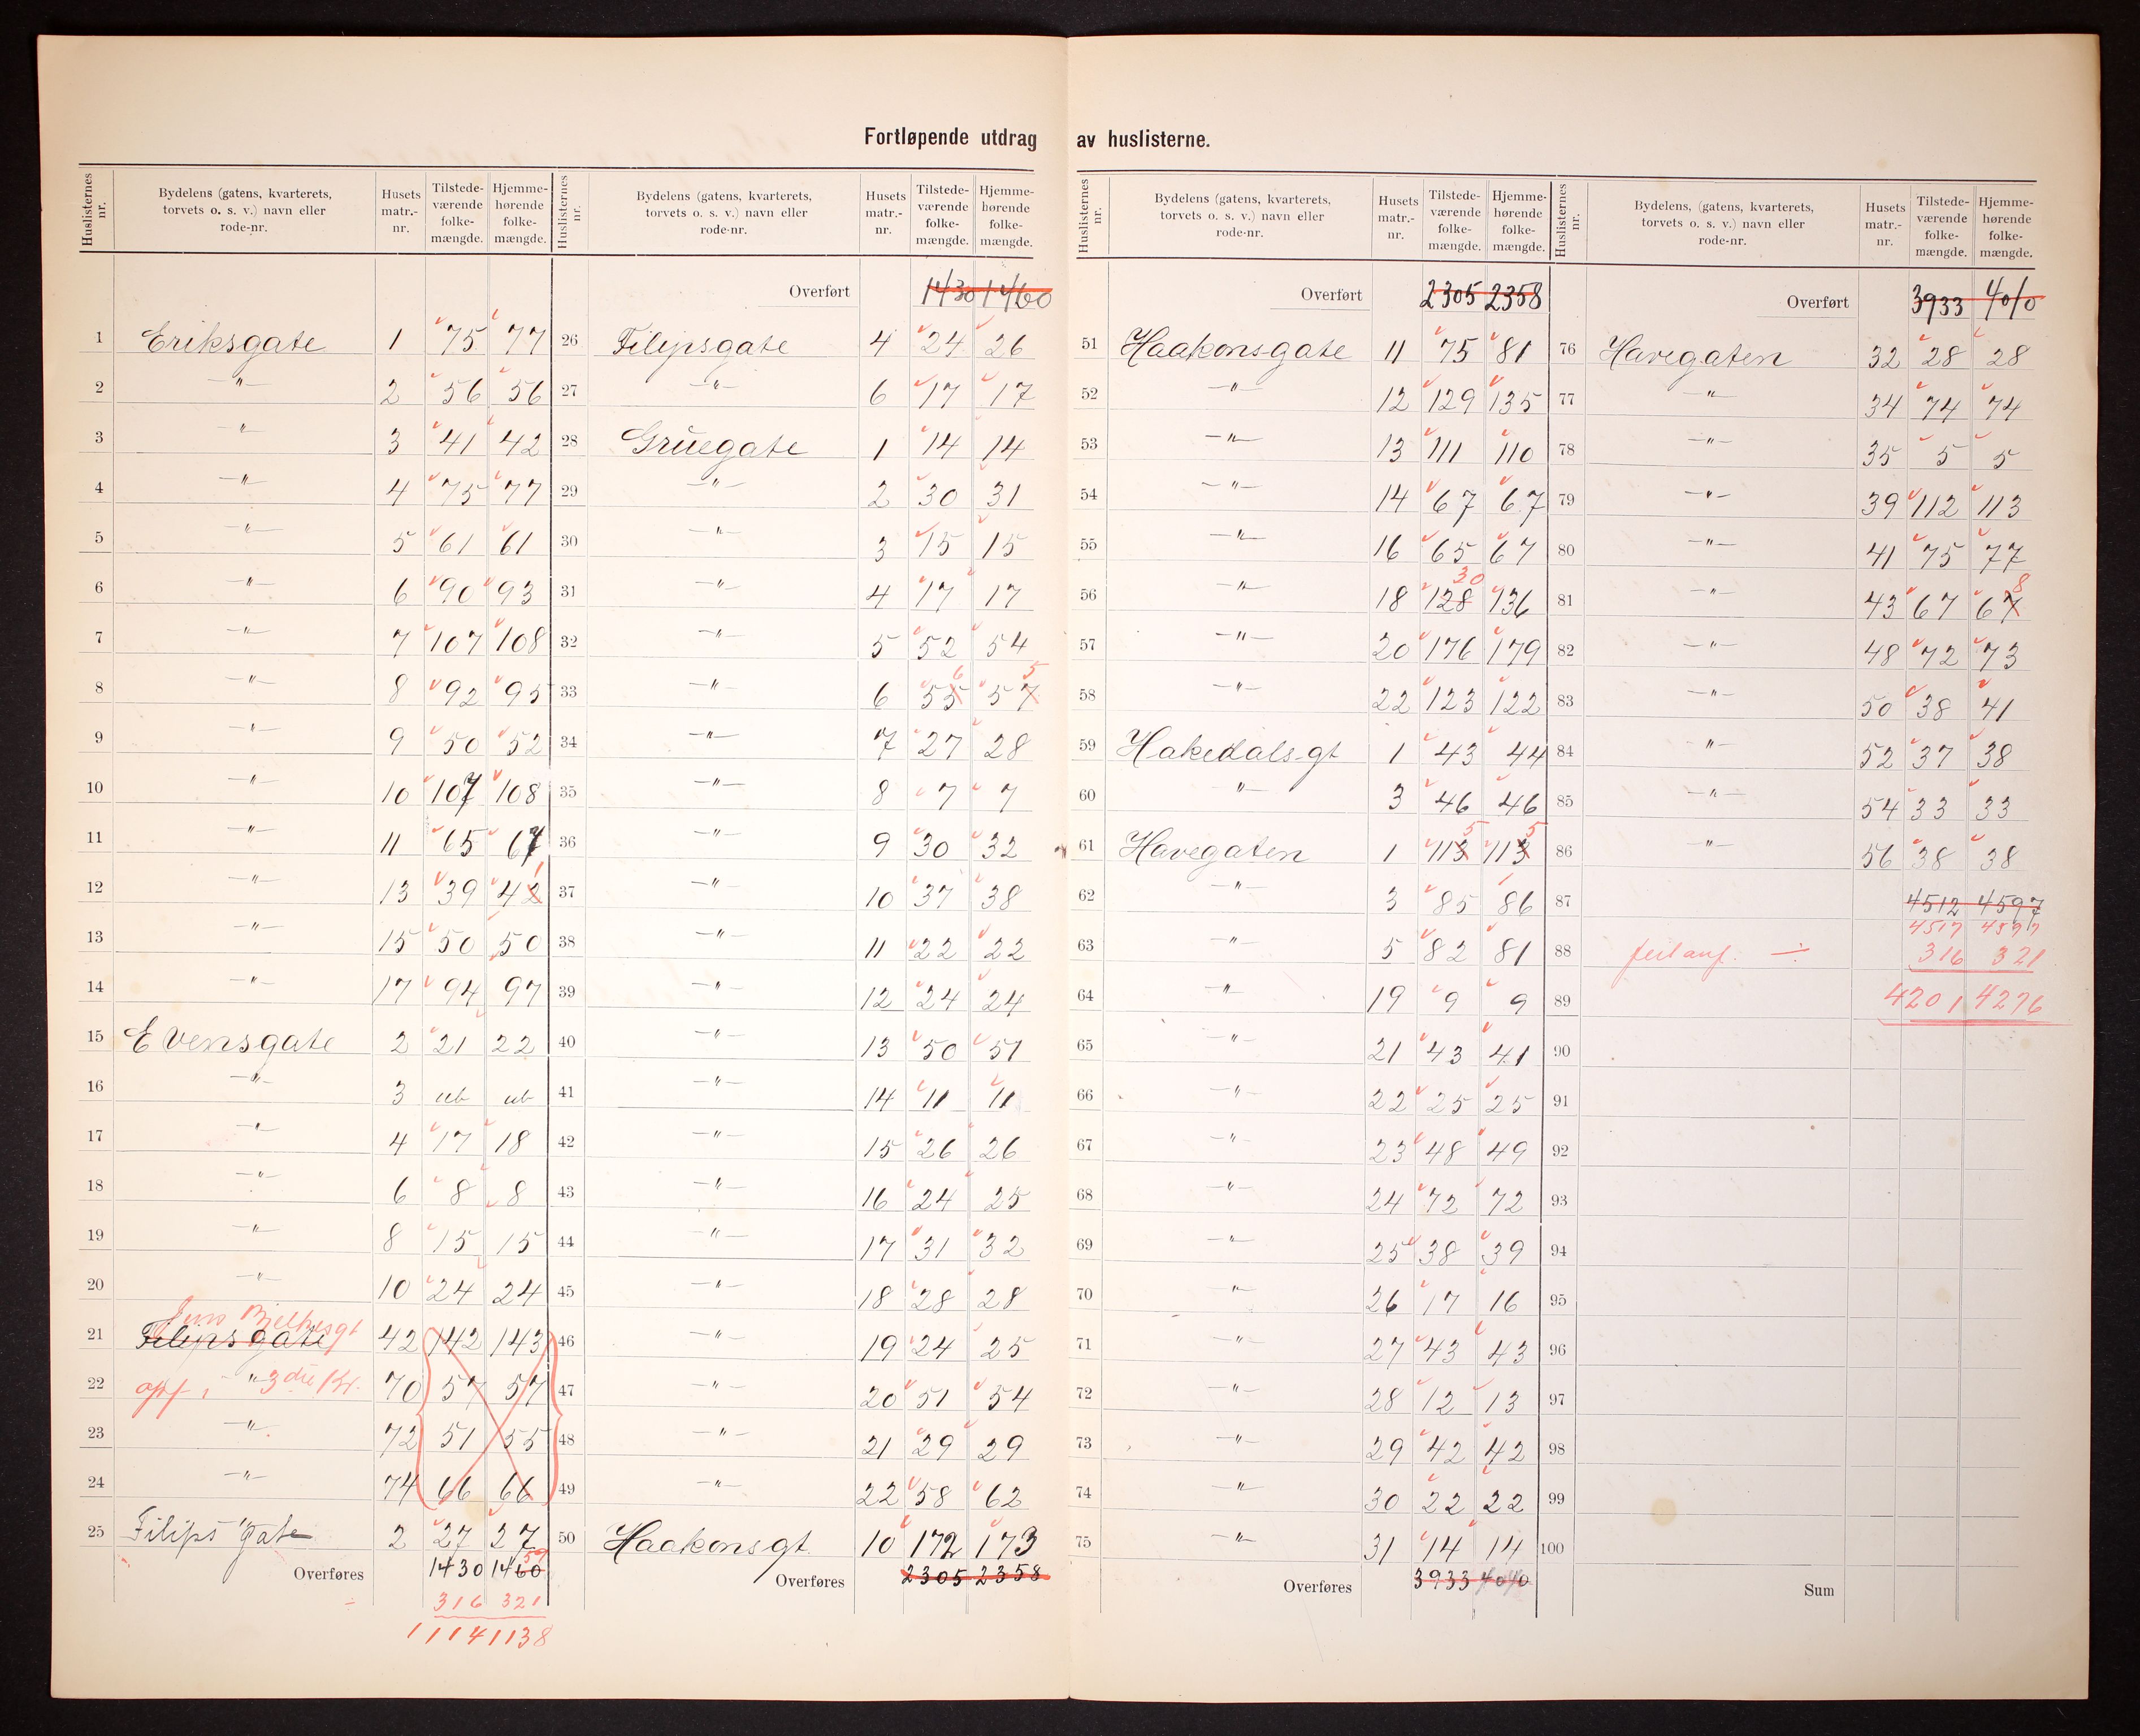 Fortløpende utdrag av huslisterne.
Huslisternes nr. | Bydelens (gatens, kvarterets, torvets o. s. v.) navn eller rode-nr. | Husets matr.-nr. | Tilstede-værende folke-mængde. | Hjemme-hørende folke-mængde.
1 Eriksgate 1 75 77
2 —"— 2 56 56
3 —"— 3 41 42
4 —"— 4 75 77
5 —"— 5 61 61
6 —"— 6 90 93
7 —"— 7 107 108
8 —"— 8 92 95
9 —"— 9 50 52
10 —"— 10 107 108
11 —"— 11 65 67
12 —"— 13 39 42 1
13 —"— 15 50 50
14 —"— 17 94 97
15 Evensgate 2 21 22
16 —"— 3 ub ub
17 —"— 4 17 18
18 —"— 6 8 8
19 —"— 8 15 15
20 —"— 10 24 24
Jens Bjelkesgt
21 Filipsgate 42 142 143
22 opf. i —"— 3die kr. 70 57 57
23 —"— 72 51 55
24 —"— 74 66 66
25 Filips gate 2 27 27
Overføres 1430 1460 59
÷ 316 321
1114 1138
Huslisternes nr. | Bydelens (gatens, kvarterets, torvets o. s. v.) navn eller rode-nr. | Husets matr.-nr. | Tilstede-værende folke-mængde. | Hjemme-hørende folke-mængde.
Overført 1430 1460
26 Filipsgate 4 24 26
27 —"— 6 17 17
28 Grüegate 1 14 14
29 —"— 2 30 31
30 —"— 3 15 15
31 —"— 4 17 17
32 —"— 5 52 54
33 —"— 6 55 6 57 5
34 —"— 7 27 28
35 —"— 8 7 7
36 —"— 9 30 32
37 —"— 10 37 38
38 —"— 11 22 22
39 —"— 12 24 24
40 —"— 13 50 51
41 —"— 14 11 11
42 —"— 15 26 26
43 —"— 16 24 25
44 —"— 17 31 32
45 —"— 18 28 28
46 —"— 19 24 25
47 —"— 20 51 54
48 —"— 21 29 29
49 —"— 22 58 62
50 Haakonsgt. 10 172 173
Overføres 2305 2358
Huslisternes nr. | Bydelens (gatens, kvarterets, torvets o. s. v.) navn eller rode-nr. | Husets matr.-nr. | Tilstede-værende folke-mængde. | Hjemme-hørende folke-mængde.
Overført 2305 2358
51 Haakonsgate 11 75 81
52 —"— 12 129 135
53 —"— 13 111 110
54 —"— 14 67 67
55 —"— 16 65 67
56 —"— 18 128 30 136
57 —"— 20 176 179
58 —"— 22 123 122
59 Hakedals-gt 1 43 44
60 —"— 3 46 46
61 Havegaten 1 113 5 113 5
62 —"— 3 85 86
63 —"— 5 82 81
64 —"— 19 9 9
65 —"— 21 43 41
66 —"— 22 25 25
67 —"— 23 48 49
68 —"— 24 72 72
69 —"— 25 38 39
70 —"— 26 17 16
71 —"— 27 43 43
72 —"— 28 12 13
73 —"— 29 42 42
74 —"— 30 22 22
75 —"— 31 14 14
Overføres 3933 4010
Huslisternes nr. | Bydelens, (gatens, kvarterets, torvets o. s. v.) navn eller rode-nr. | Husets matr.-nr. | Tilstede-værende folke-mængde. | Hjemme-hørende folke-mængde.
Overført 3933 4010
76 Havegaten 32 28 28
77 —"— 34 74 74
78 —"— 35 5 5
79 —"— 39 112 113
80 —"— 41 75 77
81 —"— 43 67 67 8
82 —"— 48 72 73
83 —"— 50 38 41
84 —"— 52 37 38
85 —"— 54 33 33
86 —"— 56 38 38
87 4512 4597
4517 4597
88 feil anf. ÷ 316 321
89 4201 4276
90
91
92
93
94
95
96
97
98
99
100
Sum